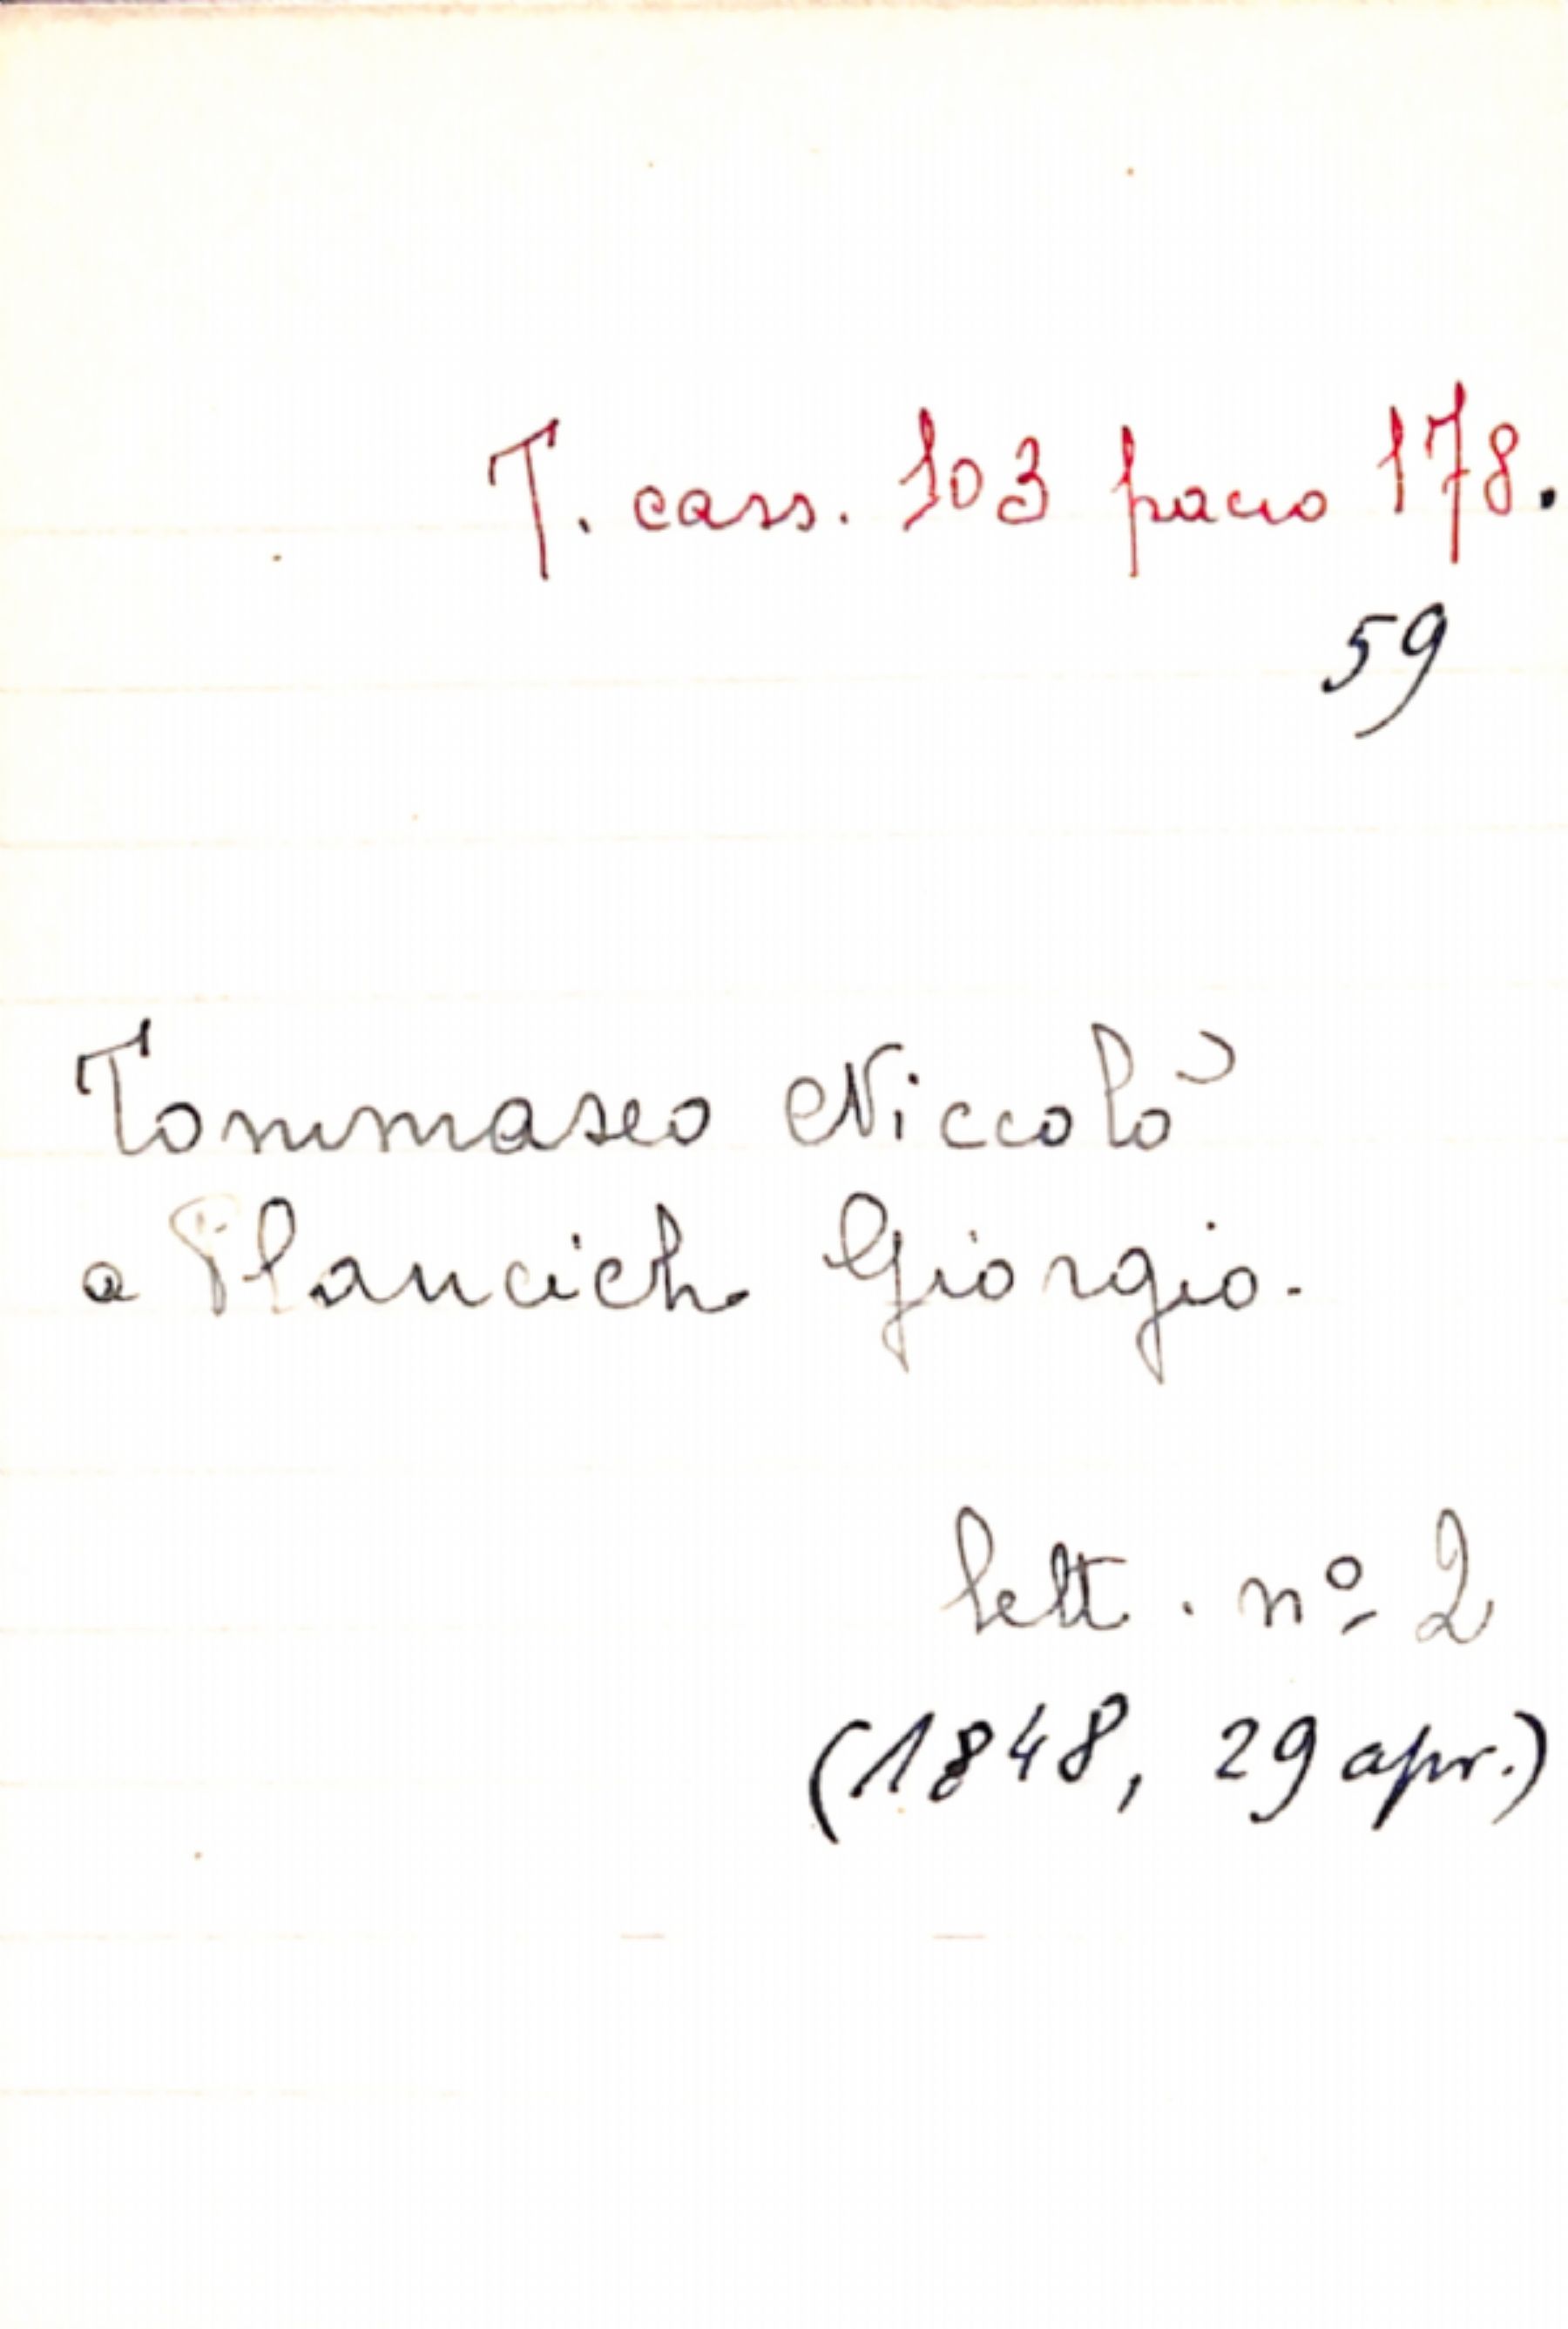 T. cass. 103 pacco 178.
59
Tommaseo Niccolò
a Plancich Giorgio.
lett. nº 2
(1848, 29 apr.)